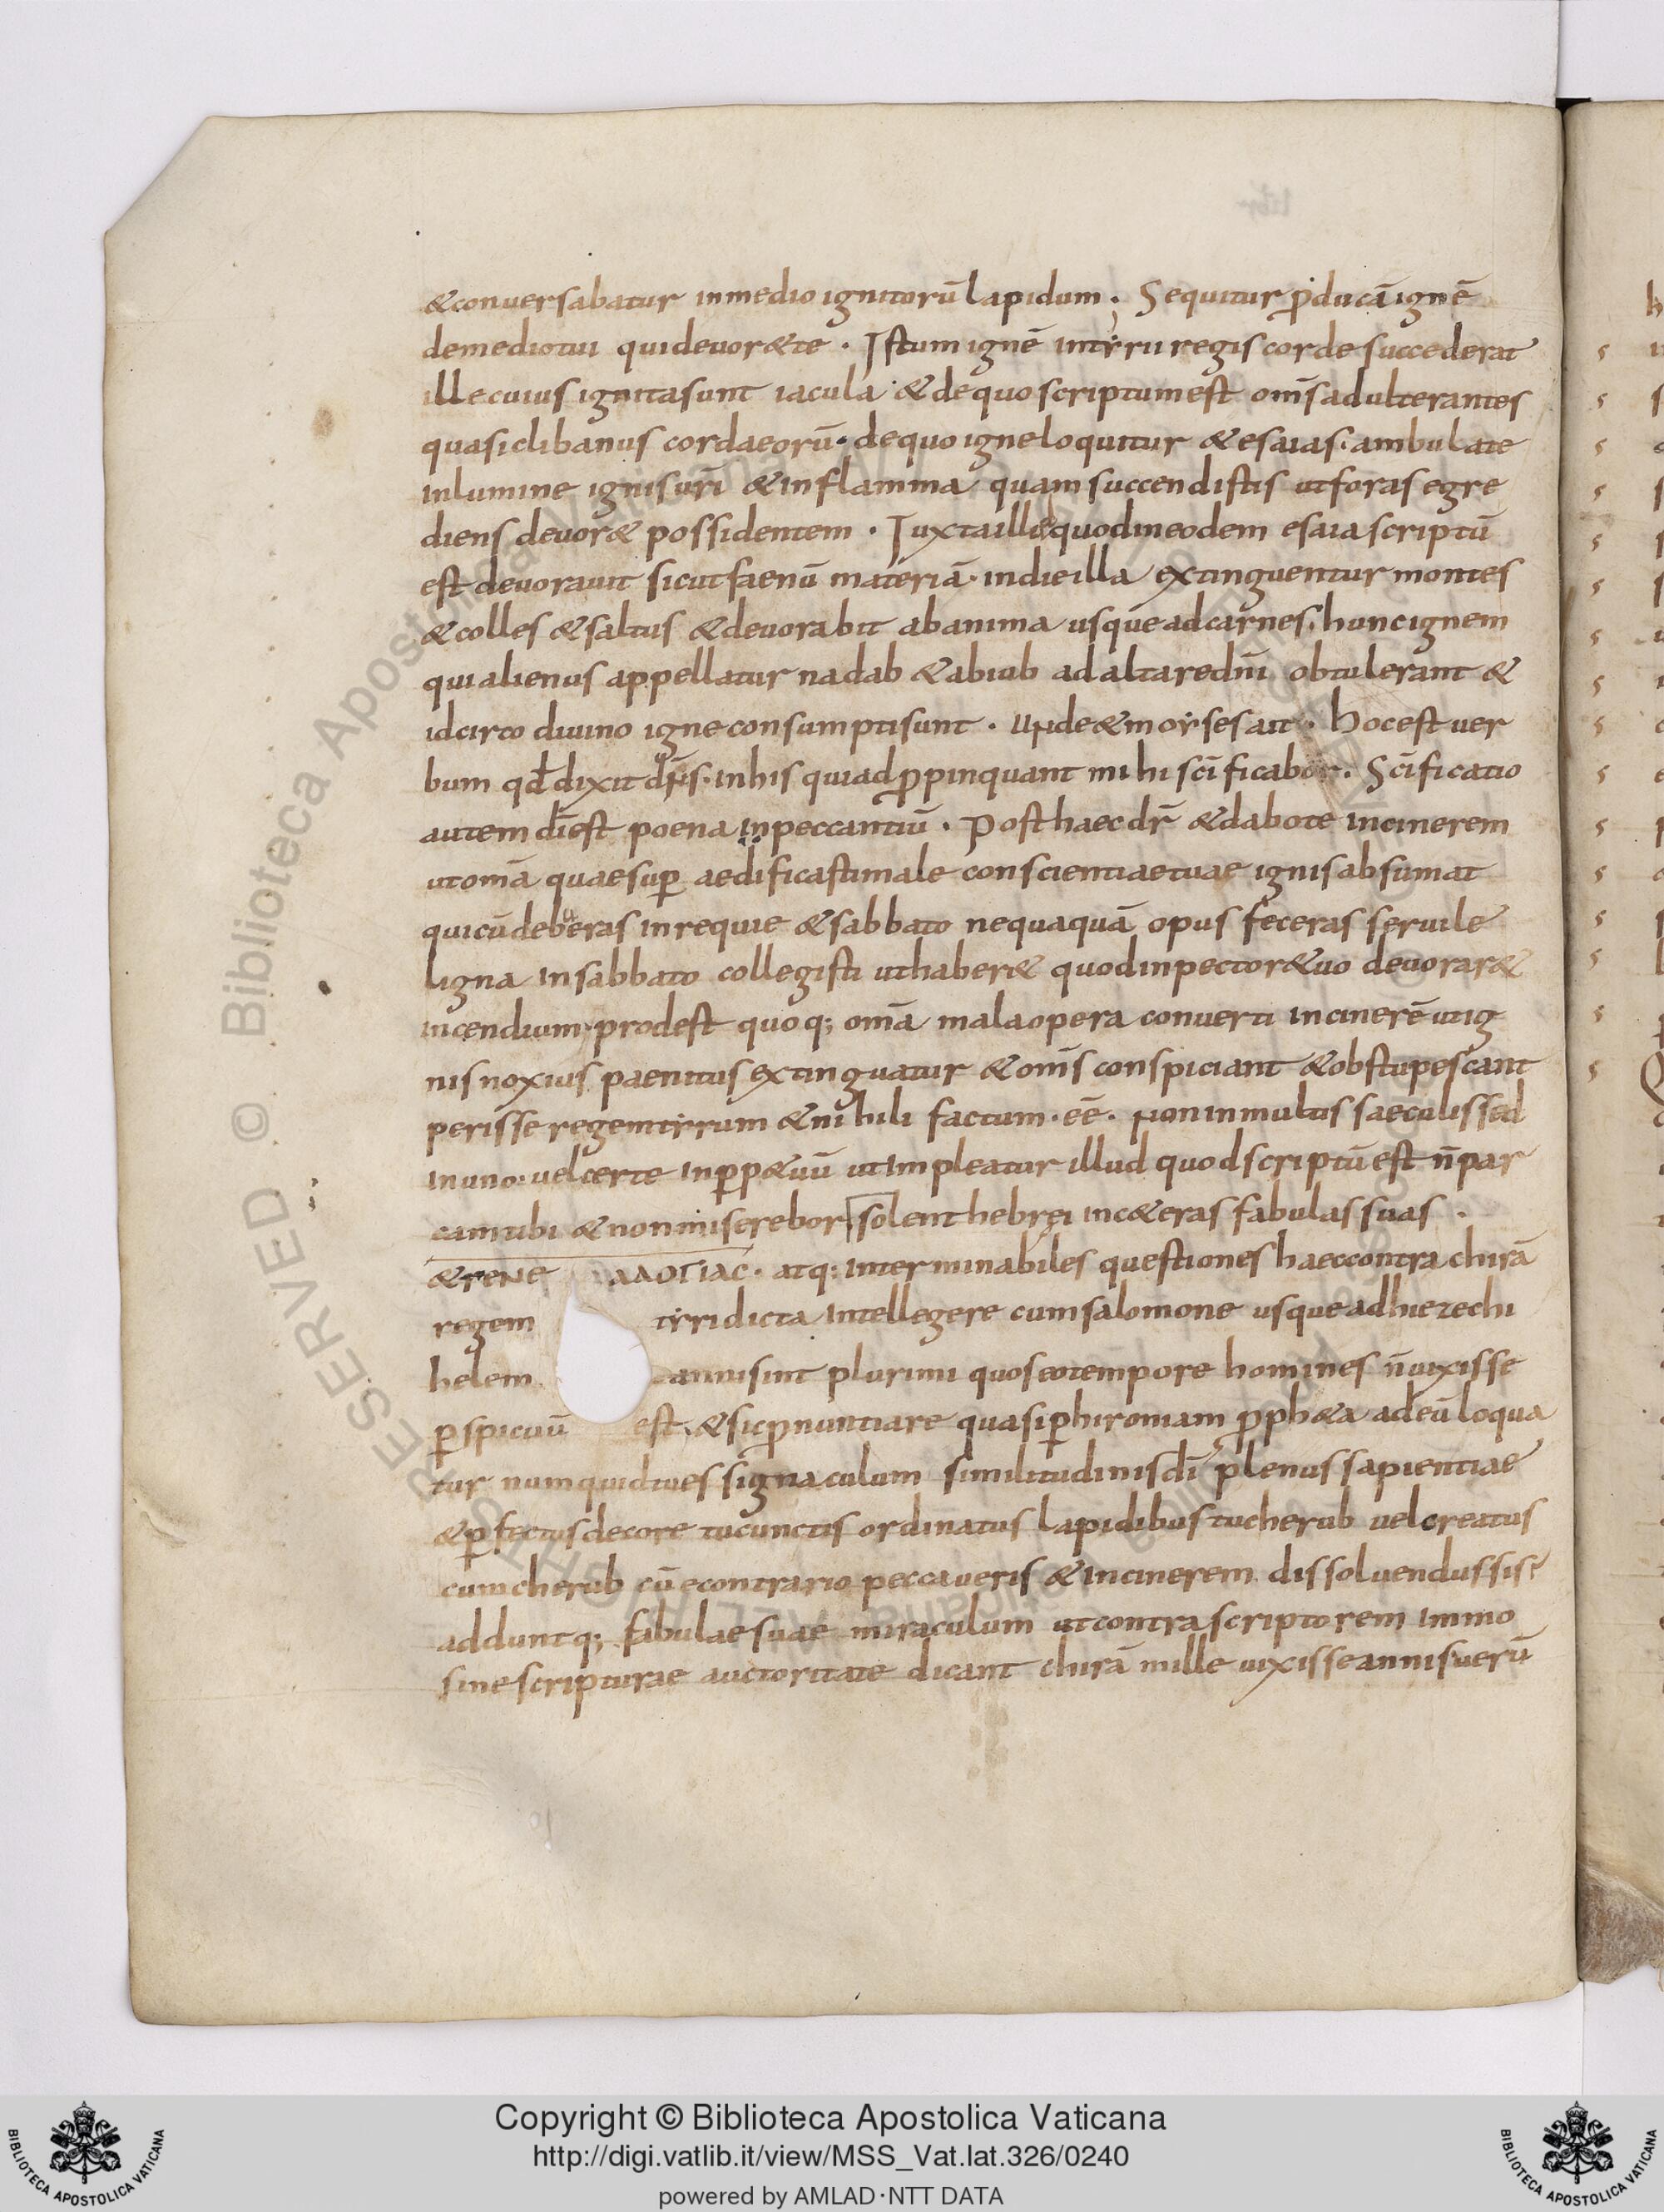 &conuersabatur inmedio ignitorū lapidum. Sequitur ꝓducā ignē
demediotui quideuor&te. Istum ignē intyrii regis corde succederat
ille cuius ignitasunt iacula &dequo scriptumest om̄s adulterantes
quasiclibanus cordaeorū. dequo igneloquitur &esaias. ambulate
inlumine ignisur̄i &inflamma quam succendistis utforas egre
diens deuor& possidentem. Iuxtaillud quodineodem esaia scriptū
est deuorauit sicutfaenū materiā. indieilla extinguentur montes
&colles &saltus &deuorabit abanima usque adcarnes. huncignem
quialienus appellatur nadab &abiub ad altaredn̄i obtulerant &
idcirco diuino igne consumptisunt. unde&moysesait. hocest uer
bum qđdixit dn̄s. inhis quiadꝓpinquant mihi sc̄ificabor. Sc̄ificatio
autem dīest poena inpeccantiū. Posthaec dr̄ &dabote incinerem
utomā quaesuꝑ aedificastimale conscientiaetuae ignisabsumat
quicūdebueras inrequie &sabbato nequaquā opus feceras seruile
ligna insabbato collegisti uthaber& quodinpector&uo deuorar&
incendium. prodest quoq; omā malaopera conuerti incinerē utig
nis noxius paenitus extinguatur &om̄s conspiciant &obstupescant
perisse regemtyrum &nihili factum. eē. noninmultis saeculis sed
inuno. uelcerte inꝑp&uū utimpleatur illud quodscriptū est n̄par
camtibi &nonmiserebor solenthebrei inc&eras fabulas suas.
&γενε αλογιας. atq: interminabiles questiones haeccontra chirā
regem tyridicta intellegere cumsalomone usqueadhiezechi
helem annisint plurimi quoseotempore homines n̄uixisse
ꝑspicuū est. &sicꝓnuntiare quasiꝑhironiam ꝓph&a adeū loqua
tur numquidtues signaculum similitudinisdī plenus sapientiae
&ꝑfectus decore tucunctis ordinatus lapidibus tucherub uelcreatus
cumcherub cūecontrario peccaueris &incinerem dissoluendussis?
adduntq; fabulaesuae miraculum utcontrascriptorem immo
sinescripturae auctoritate dicant chirā mille uixisseannis uerū
Copyright © Biblioteca Apostolica Vaticana
http://digi.vatlib.it/view/MSS_Vat.lat.326/0240
powered by AMLAD·NTT DATA